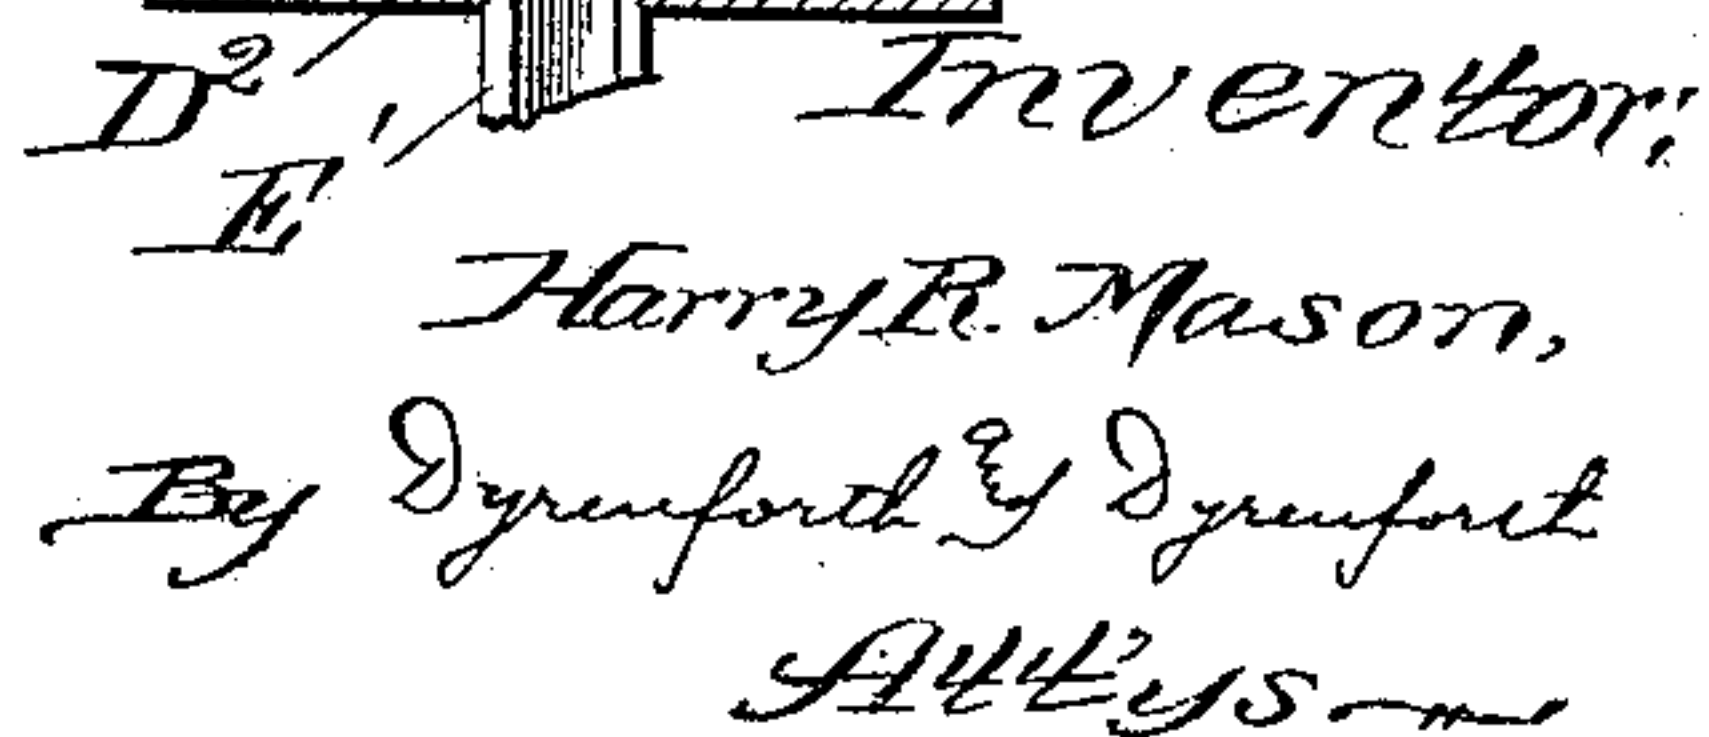 D²
Inventor:
E'
Harry R. Mason,
By Dyrenforth & Dyrenforth
Att'ys